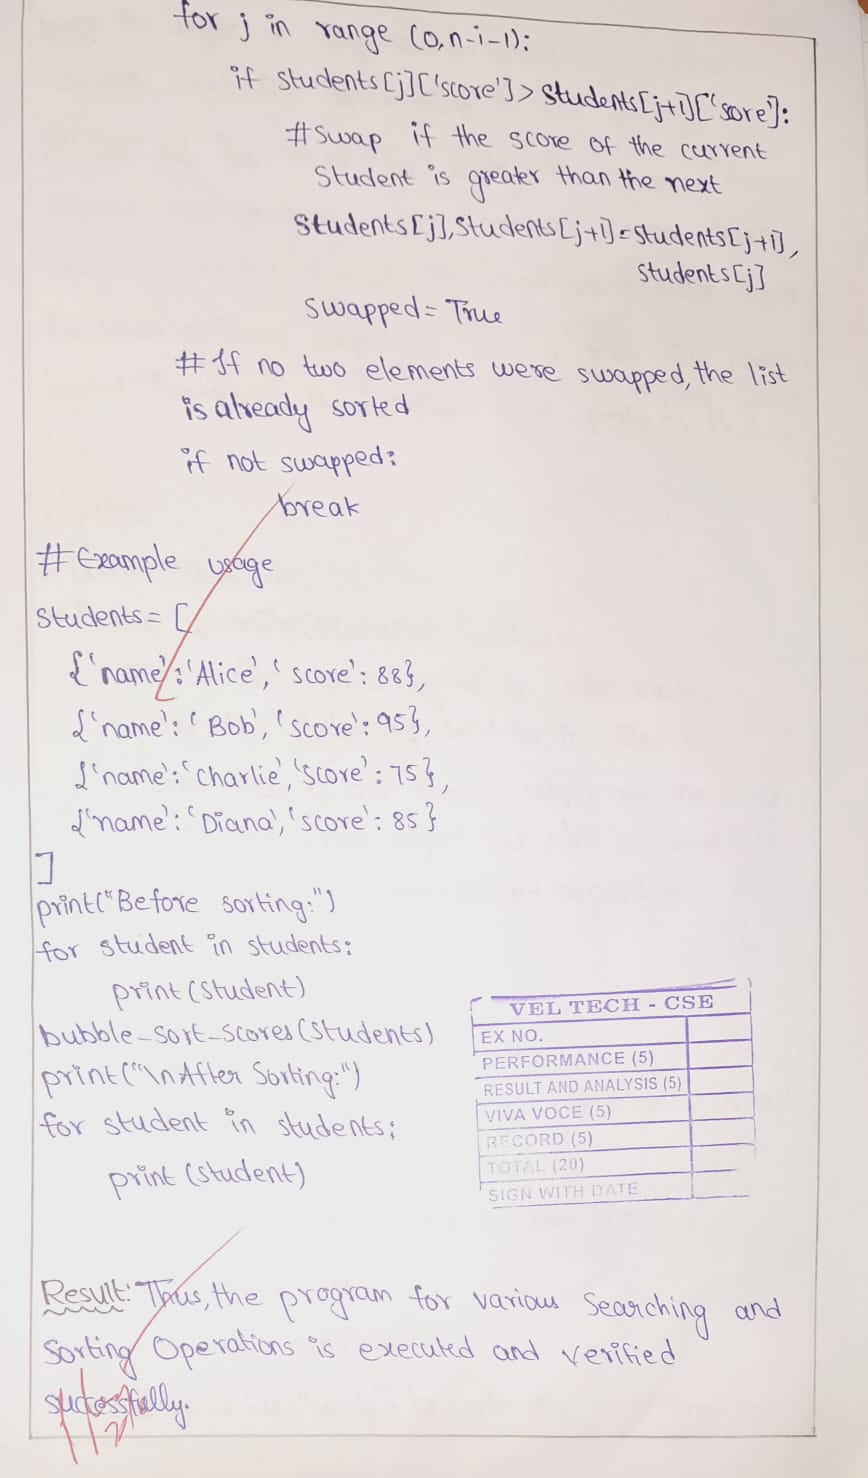 for j in range (0,n-i-1):
if students[j]['score']>students[j+1]['sore']:
#Swap if the score of the current
Student is greater than the next
Students[j],Students[j+1]=students[j+1],
students[j]
Swapped=True
#If no two elements were swapped, the list
is already sorted
if not swapped:
break
#Example usage
Students=[
{'name':'Alice','score':88},
{'name':'Bob','score':95},
{'name':'Charlie','Score':75},
{'name':'Diana','score':85}
]
print("Before sorting:")
for student in students:
print(Student)
bubble_sort_scores(Students)
print("\nAfter Sorting:")
for student in students:
print(Student)
VEL TECH - CSE
EX NO.
PERFORMANCE (5)
RESULT AND ANALYSIS (5)
VIVA VOCE (5)
RECORD (5)
TOTAL (20)
SIGN WITH DATE
Result: Thus, the program for various Searching and
Sorting Operations is executed and verified
successfully.